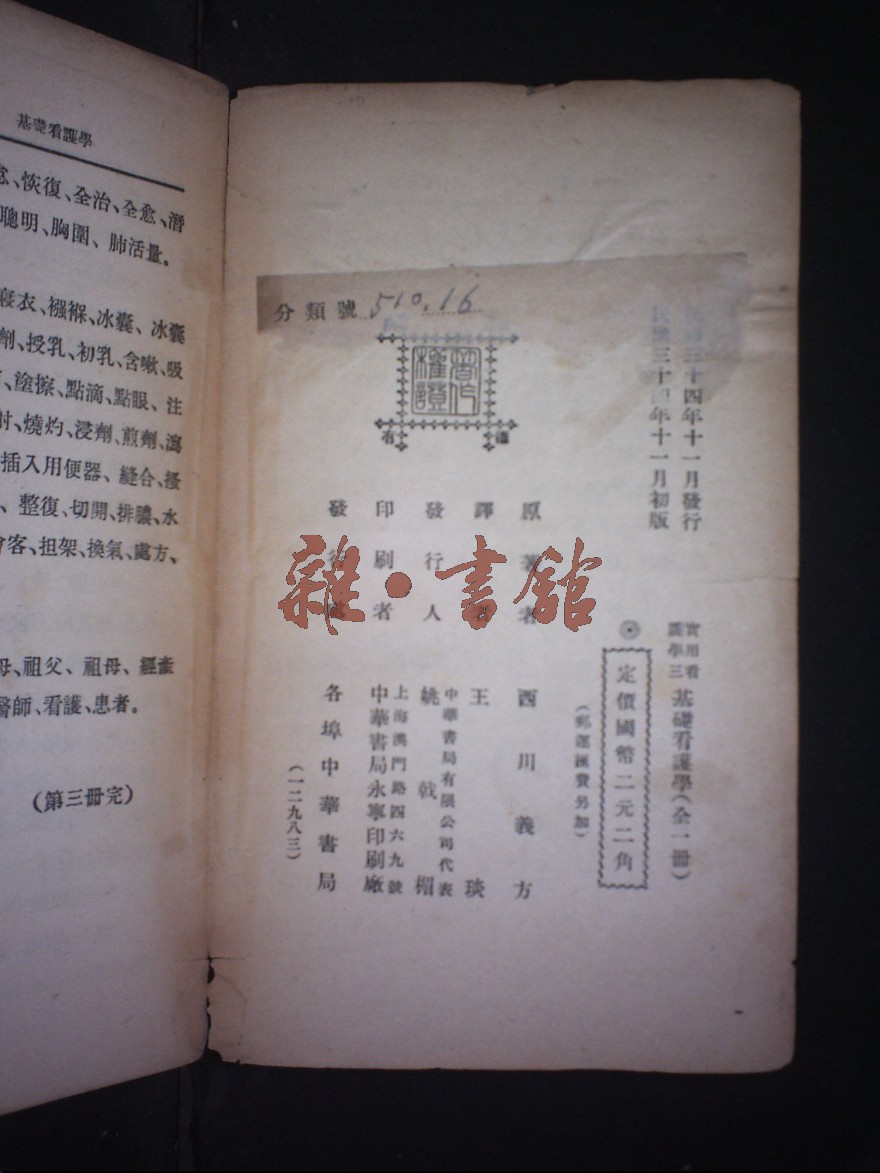 基礎看護學
恢復、全治、全愈、潛
聰明、胸圍、肺活量。
寢衣、襁褓、冰囊、冰囊
劑、授乳、初乳、含嗽、吸
塗擦、點滴、點眼、注
射、燒灼、浸劑、煎劑、瀉
插入用便器、縫合、搔
、整復、切開、排膿、水
會客、担架、換氣、處方、
母、祖父、祖母、經產
醫師、看護、患者。
(第三冊完)
分類號 510.16
著作權證
有
三十四年十一月發行
民國三十四年十一月初版
實用看護學三 基礎看護學(全一冊)
定價國幣二元二角
(郵運匯費另加)
原著者 西川義方
譯者 王琰
發行人 中華書局有限公司代表 姚戟楣
印刷者 上海澳門路四六九號 中華書局永寧印刷廠
發行處 各埠中華書局
(一二九八三)
雜·書館